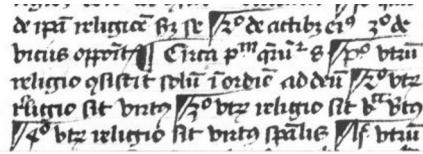 de ipā religiōe scz se ¶ 2º de actibꝫ eiꝰ 3º de
viciis oppoĩt ¶ Circa pᵐ q̄rũt᷑ 8 ¶ pº vtrũ
religio ɔsistit solũ ĩ ordiē ad deũ ¶ 2º vtꝝ
religio sit virtꝰ ¶ 3º vtꝝ religio sit vª v̉tꝰ
¶ 4º vtꝝ religio sit virtꝰ sp̄alis ¶ 5 vtrũ